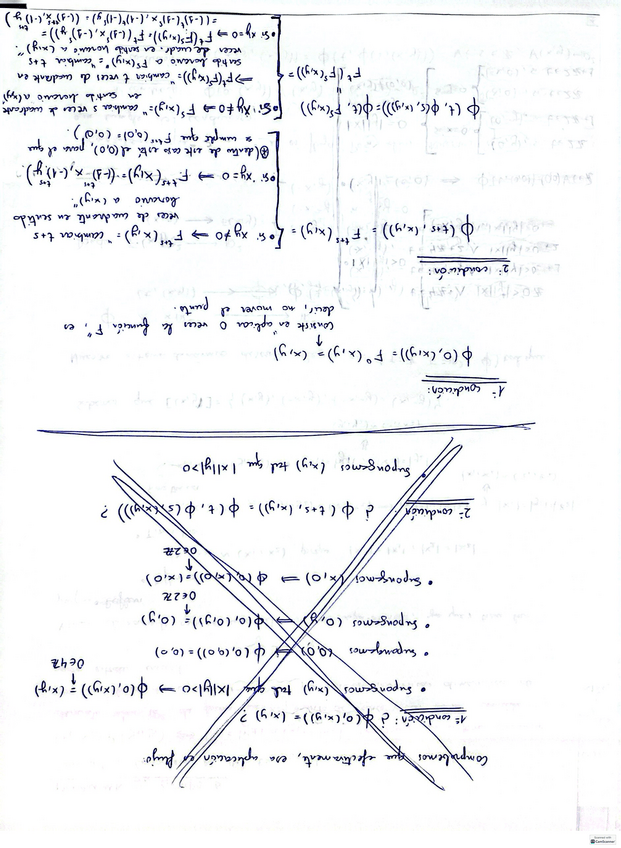 Comprobemos que efectivamente, esa aplicación es flujo:
1ª condición: ¿ ϕ(0,(x,y)) = (x,y) ?
• Supongamos (x,y) tal que |x||y|>0 ⇒ ϕ(0,(x,y)) = (x,y)
0∈4ℤ
• Supongamos (0,0) ⇒ ϕ(0,(0,0)) = (0,0)
• Supongamos (0,y) ⇒ ϕ(0,(0,y)) = (0,y)
0∈2ℤ
• Supongamos (x,0) ⇒ ϕ(0,(x,0)) = (x,0)
0∈2ℤ
2ª condición: ¿ ϕ(t+s,(x,y)) = ϕ(t,ϕ(s,(x,y))) ?
• Supongamos (x,y) tal que |x||y|>0
1ª condición:
ϕ(0,(x,y)) = F⁰(x,y) = (x,y)
consiste en "aplicar 0 veces la función F", es
decir, no mover el punto.
2ª condición:
ϕ(t+s,(x,y)) = F^{t+s}(x,y) =
• Si xy≠0 ⇒ F^{t+s}(x,y) = "cambiar t+s
veces de cuadrante en sentido
horario a (x,y)".
• Si xy=0 ⇒ F^{t+s}(x,y) = ((-1)^{t+s}x, (-1)^{t+s}y)
(dentro de este caso está el (0,0), para el que
se cumple que F^{t+s}(0,0) = (0,0)).
ϕ(t,ϕ(s,(x,y))) = ϕ(t,F^s(x,y)) =
F^t(F^s(x,y)) =
• Si xy≠0 ⇒ F^s(x,y) = "cambiar s veces de cuadrante
en sentido horario a (x,y)
⇒ F^t(F^s(x,y)) = "cambiar t veces de cuadrante en
sentido horario a F^s(x,y)" = "cambiar t+s
veces de cuad. en sentido horario a (x,y)".
• Si xy=0 ⇒ F^t(F^s(x,y)) =
= ((-1)^t(-1)^s x, (-1)^t(-1)^s y) = ((-1)^{t+s}x, (-1)^{t+s}y)
CamScanner